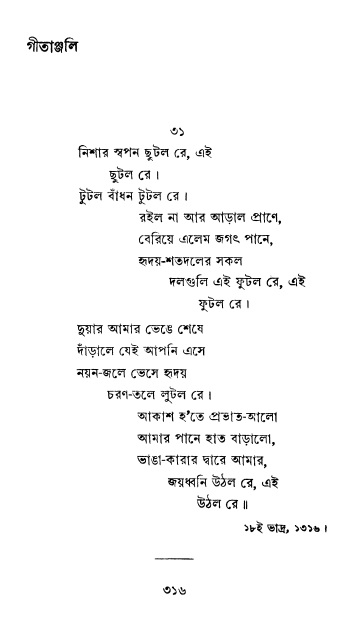 গীতাঞ্জলি
৩১
নিশার স্বপন ছুটল রে, এই
ছুটল রে।
টুটল বাঁধন টুটল রে।
রইল না আর আড়াল প্রাণে,
বেরিয়ে এলেম জগৎ পানে,
হৃদয়-শতদলের সকল
দলগুলি এই ফুটল রে, এই
ফুটল রে।
দুয়ার আমার ভেঙে শেষে
দাঁড়ালে যেই আপনি এসে
নয়ন-জলে ভেসে হৃদয়
চরণ-তলে লুটল রে।
আকাশ হ'তে প্রভাত-আলো
আমার পানে হাত বাড়ালো,
ভাঙা-কারার দ্বারে আমার,
জয়ধ্বনি উঠল রে, এই
উঠল রে॥
১৮ই ভাদ্র, ১৩১৬।
৩১৬